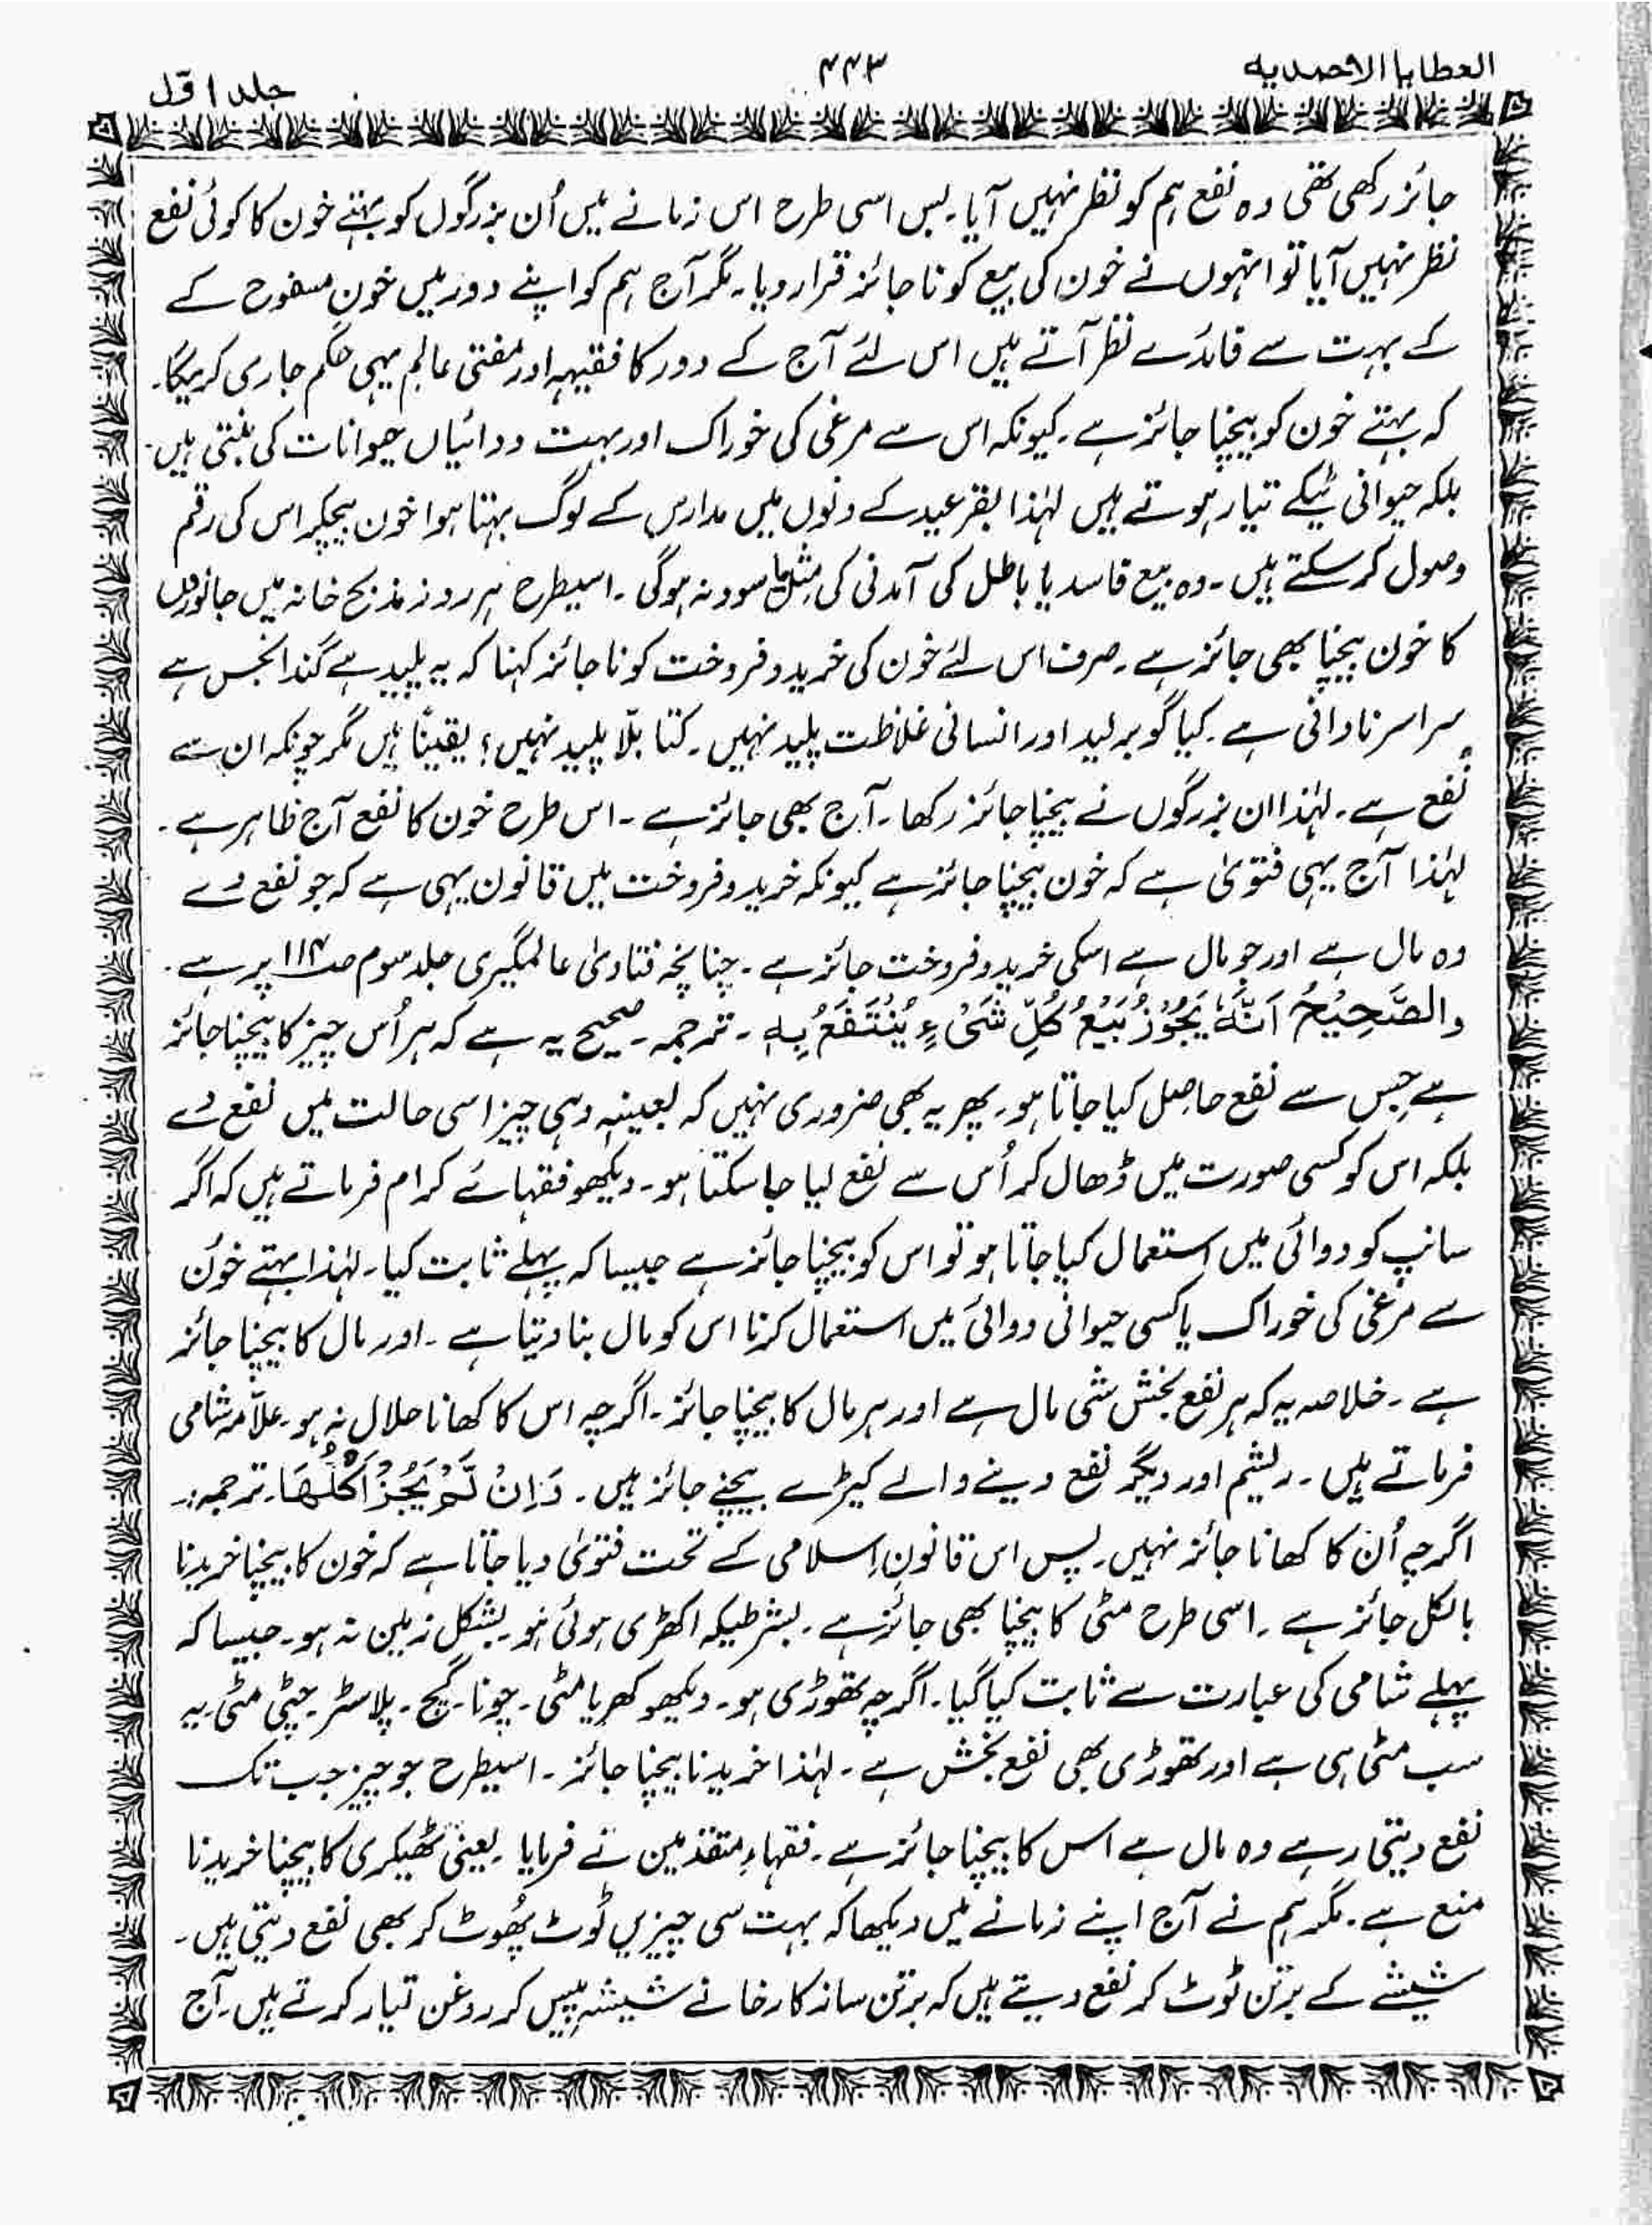 العطایا الاحمدیہ
۴۴۳
جلد اوّل
جائز رکھی تھی وہ نفع ہم کو نظر نہیں آیا۔ بس اسی طرح اس زمانے میں اُن بزرگوں کو بہتے خون کا کوئی نفع
نظر نہیں آیا تو انہوں نے خون کی بیع کو ناجائز قرار دیا۔ مگر آج ہم کو اپنے دور میں خونِ مسفوح کے
کے بہت سے فائدے نظر آتے ہیں اس لئے آج کے دور کا فقیہہ اور مفتی عالِم یہی حکم جاری کریگا۔
کہ بہتے خون کو بیچنا جائز ہے۔ کیونکہ اس سے مرغی کی خوراک اور بہت دوائیاں حیوانات کی بنتی ہیں۔
بلکہ حیوانی ٹیکے تیار ہوتے ہیں لہٰذا بقر عید کے دنوں میں مدارس کے لوگ بہتا ہوا خون بیچکر اس کی رقم
وصول کر سکتے ہیں۔ وہ بیع فاسد یا باطل کی آمدنی کی مثل یا سود نہ ہوگی۔ اسیطرح ہر روز مذبح خانہ میں جانوروں
کا خون بیچنا بھی جائز ہے۔ صرف اس لئے خون کی خرید و فروخت کو ناجائز کہنا کہ یہ پلید ہے گندا نجس ہے
سراسر نادانی ہے۔ کیا گوبر لید اور انسانی غلاظت پلید نہیں۔ کتا بلّا پلید نہیں؟ یقینًا ہیں مگر چونکہ ان سے
نفع ہے۔ لہٰذا ان بزرگوں نے بیچنا جائز رکھا۔ آج بھی جائز ہے۔ اس طرح خون کا نفع آج ظاہر ہے۔
لہٰذا آج یہی فتویٰ ہے کہ خون بیچنا جائز ہے کیونکہ خرید و فروخت میں قانون یہی ہے کہ جو نفع دے
وہ مال ہے اور جو مال ہے اسکی خرید و فروخت جائز ہے۔ چنانچہ فتاویٰ عالمگیری جلد سوم صہ۱۱۴ پر ہے۔
والصَّحِیْحُ اَنَّہٗ یَجُوْزُ بَیْعُ کُلِّ شَیْءٍ یُنْتَفَعُ بِہٖ ۔ ترجمہ۔ صحیح یہ ہے کہ ہر اُس چیز کا بیچنا جائز
ہے جس سے نفع حاصل کیا جاتا ہو۔ پھر یہ بھی ضروری نہیں کہ بعینہٖ وہی چیز اسی حالت میں نفع دے
بلکہ اس کو کسی صورت میں ڈھال کر اُس سے نفع لیا جا سکتا ہو۔ دیکھو فقہائے کرام فرماتے ہیں کہ اگر
سانپ کو دوائی میں استعمال کیا جاتا ہو تو اس کو بیچنا جائز ہے جیسا کہ پہلے ثابت کیا۔ لہٰذا بہتے خون
سے مرغی کی خوراک یا کسی حیوانی دوائی میں استعمال کرنا اس کو مال بنا دیتا ہے۔ اور مال کا بیچنا جائز
ہے۔ خلاصہ یہ کہ ہر نفع بخش شی مال ہے اور ہر مال کا بیچنا جائز۔ اگرچہ اس کا کھانا حلال نہ ہو۔ علاّمہ شامی
فرماتے ہیں۔ ریشم اور دیگر نفع دینے والے کیڑے بیچنے جائز ہیں۔ وَاِنْ لَّمْ یَجُزْ اَکْلُھَا۔ ترجمہ:۔
اگرچہ اُن کا کھانا جائز نہیں۔ پس اس قانونِ اسلامی کے تحت فتویٰ دیا جاتا ہے کہ خون کا بیچنا خریدنا
بالکل جائز ہے۔ اسی طرح مٹی کا بیچنا بھی جائز ہے۔ بشرطیکہ اکھڑی ہوئی ہو بشکل زمین نہ ہو۔ جیسا کہ
پہلے شامی کی عبارت سے ثابت کیا گیا۔ اگرچہ تھوڑی ہو۔ دیکھو کھریا مٹی۔ چونا۔ گچ۔ پلاسٹر۔ چپٹی مٹی۔ یہ
سب مٹی ہی ہے اور تھوڑی بھی نفع بخش ہے۔ لہٰذا خریدنا بیچنا جائز۔ اسیطرح جو چیز جب تک
نفع دیتی رہے وہ مال ہے اس کا بیچنا جائز ہے۔ فقہاءِ متقدمین نے فرمایا۔ یعنی ٹھیکری کا بیچنا خریدنا
منع ہے۔ مگر ہم نے آج اپنے زمانے میں دیکھا کہ بہت سی چیزیں ٹوٹ پُھوٹ کر بھی نفع دیتی ہیں۔
شیشے کے برتن ٹوٹ کر نفع دیتے ہیں کہ برتن ساز کارخانے شیشہ پیس کر روغن تیار کرتے ہیں۔ آج